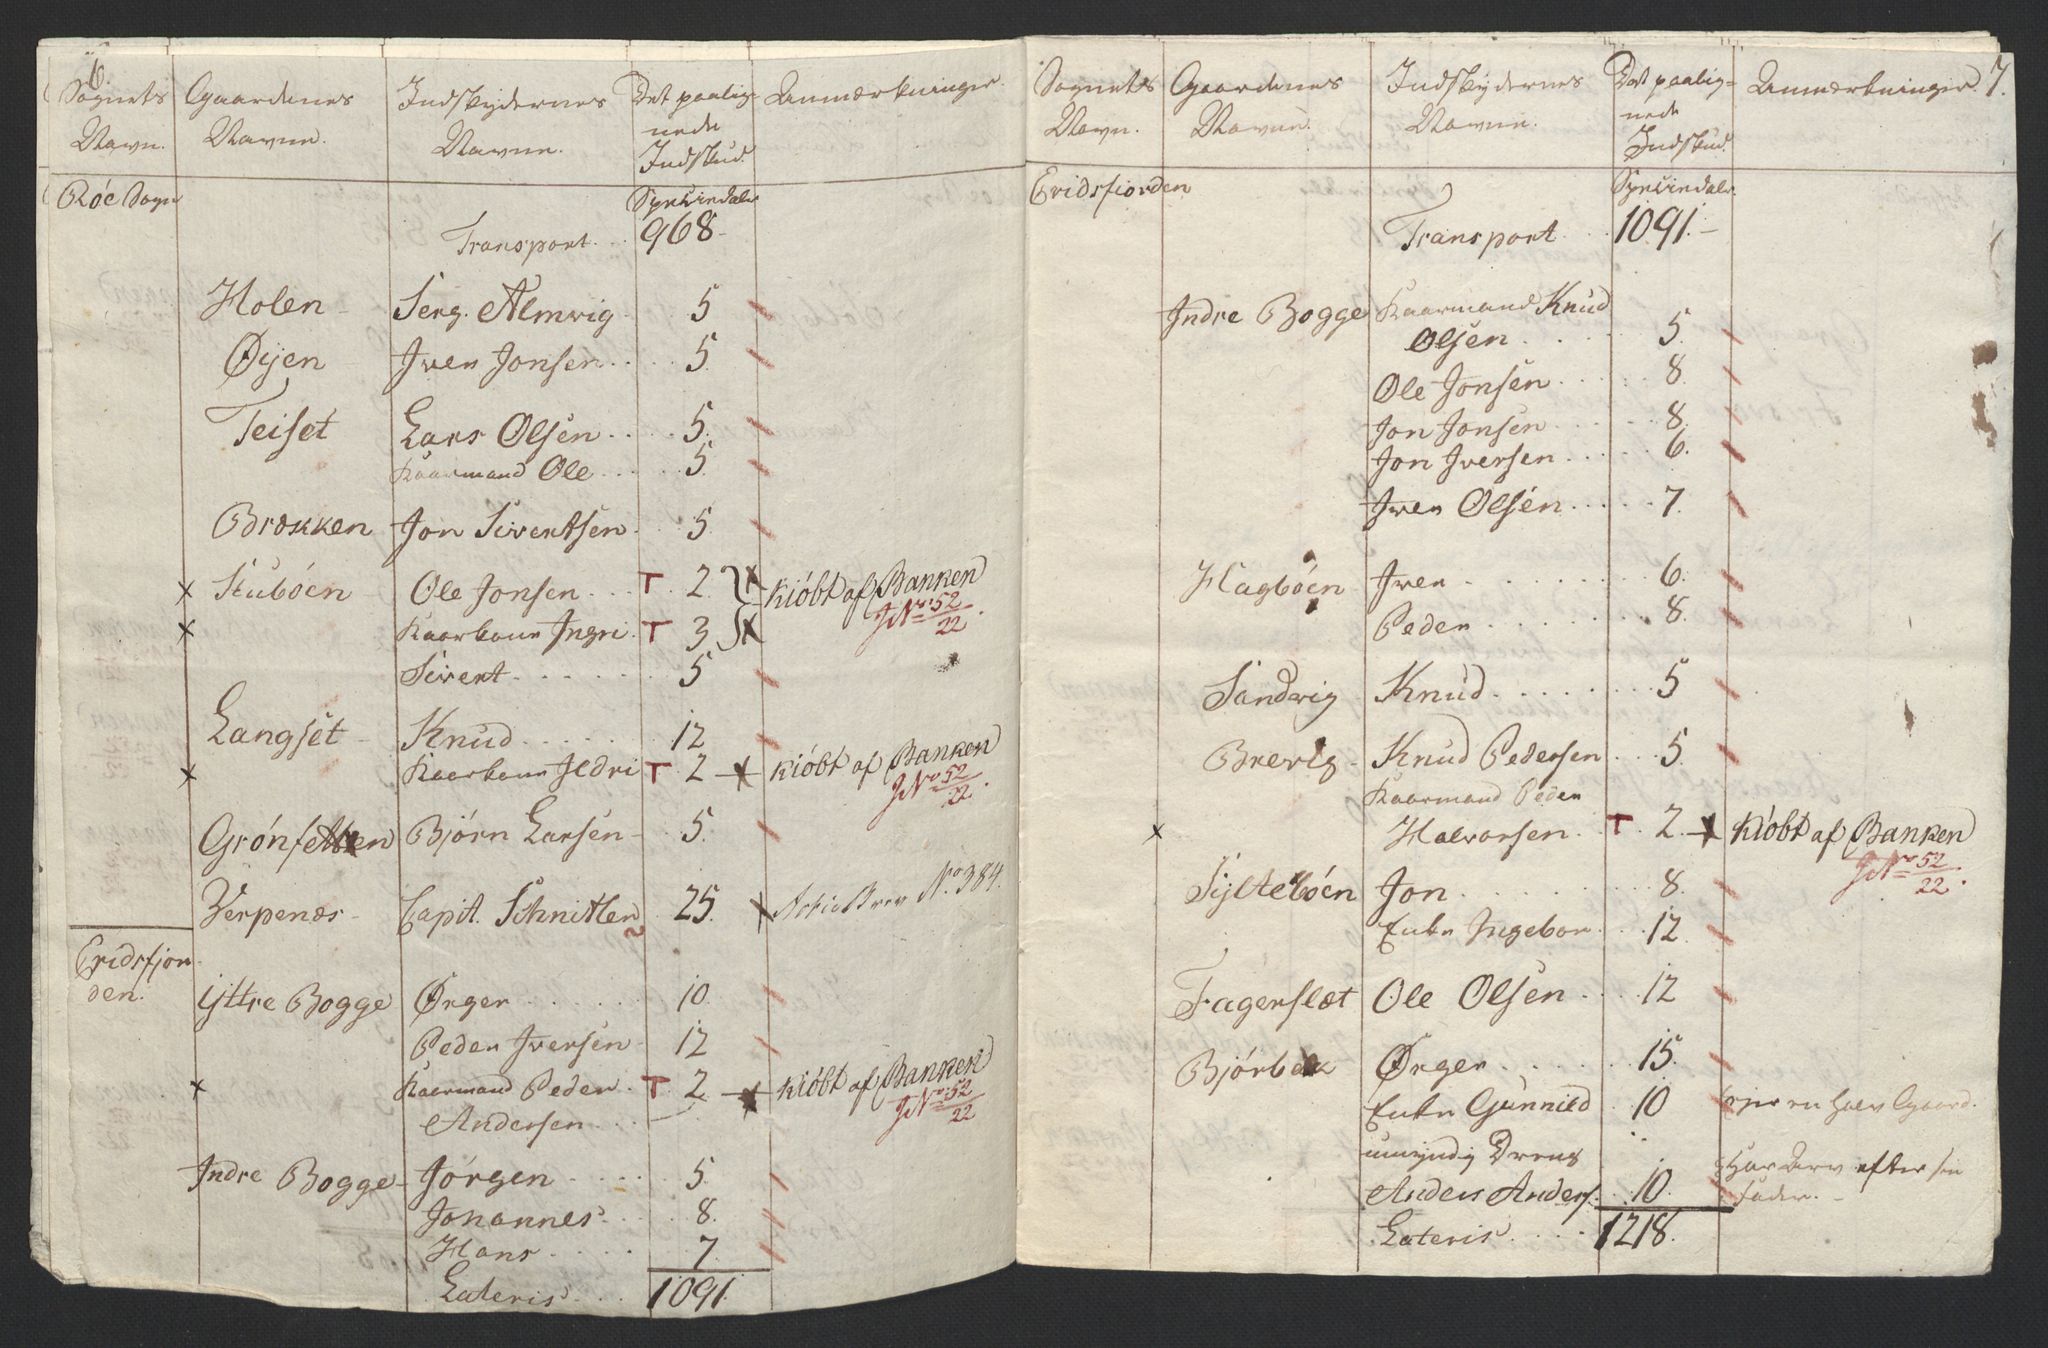 6.
Sognets Gaardenes Indskydernes Det paalig- Anmærkninger.
Navn. Navne. Navne. nede
Indskud.
Røe Sogn Speciesdaler
Transport . . 968-
Holen - Serg. Almvig 5
Øyen Iver Jonsen . . . . 5.
Teiset Lars Olsen . . . . 5.
Kaarmand Ole . . . . 5.
Brækken Jon Sivertsen . 5.
x Stubøen Ole Jonsen . . . T 2. } x kiøbt af Banken
x Kaarkone Ingri . T 3 } x J No 52/22.
Sivert . . . . . . . 5
Langset - Knud . . . . . . 12
x Kaarkone Ildri T 2 -x kiøbt af Banken
J No 52/22.
Grønsetten Bjørn Larsen - 5.
Verpenæs - Capit. Schnitler 25. x Actie Brev No 384.
Eridsfjor-
den. Yttre Bogge Ørger . . . . . . 10.
Peder Iversen . 12
x Kaarmand Peder T 2. -x kiøbt af Banken
Andersen . . . J No 52/22
Indre Bogge - Jørgen . . . . . 5.
Johannes . . . . 8.
Hans . . . . . . 7.
Lateris . . . 1091.
7.
Sognets Gaardenes Indskydernes Det paalig- Anmærkninger.
Navn. Navne. Navne. nede
Indskud.
Eridsfiorden Speciesdaler
Transport . . . 1091.-
Indre Bogge Kaarmand Knud
Olsen . . . . . 5.
Ole Jonsen . . . . . 8.
Jon Jonsen . . . . . 8.
Jon Iversen . . . . . 6.
Iver Olsen . . . . . 7.
Hagbøen Iver . . . . . . . . 6.
Peder . . . . . . . . 8.
Sandvig Knud . . . . . . . . 5
Brevig - Knud Pedersen . . 5.
Kaarmand Peder
x Halvorsen . T 2. -x kiøbt af Banken
J No 52/22.
Syltebøen Jon . . . . . . . . 8.
Enke Ingebor . . . 12.
Fagerslæt Ole Olsen . . . 12
Bjørbæk Ørger . . . . . . 15.
Enke Gunnild 10 ejer en halv Gaard.
umyndig Dreng
Anders Anders. . 10. Har Arv efter sin
Fader. -
Lateris . . . . 1218.